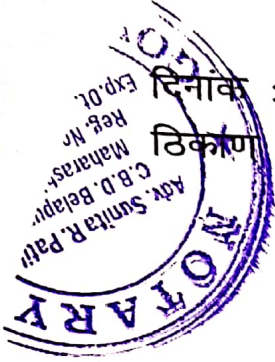 दिनांक :
ठिकाण
NOTARY
Adv. Sunita R. Patil
C.B.D. Belapu
Maharas
Reg. Nr
Exp. Dt
GO